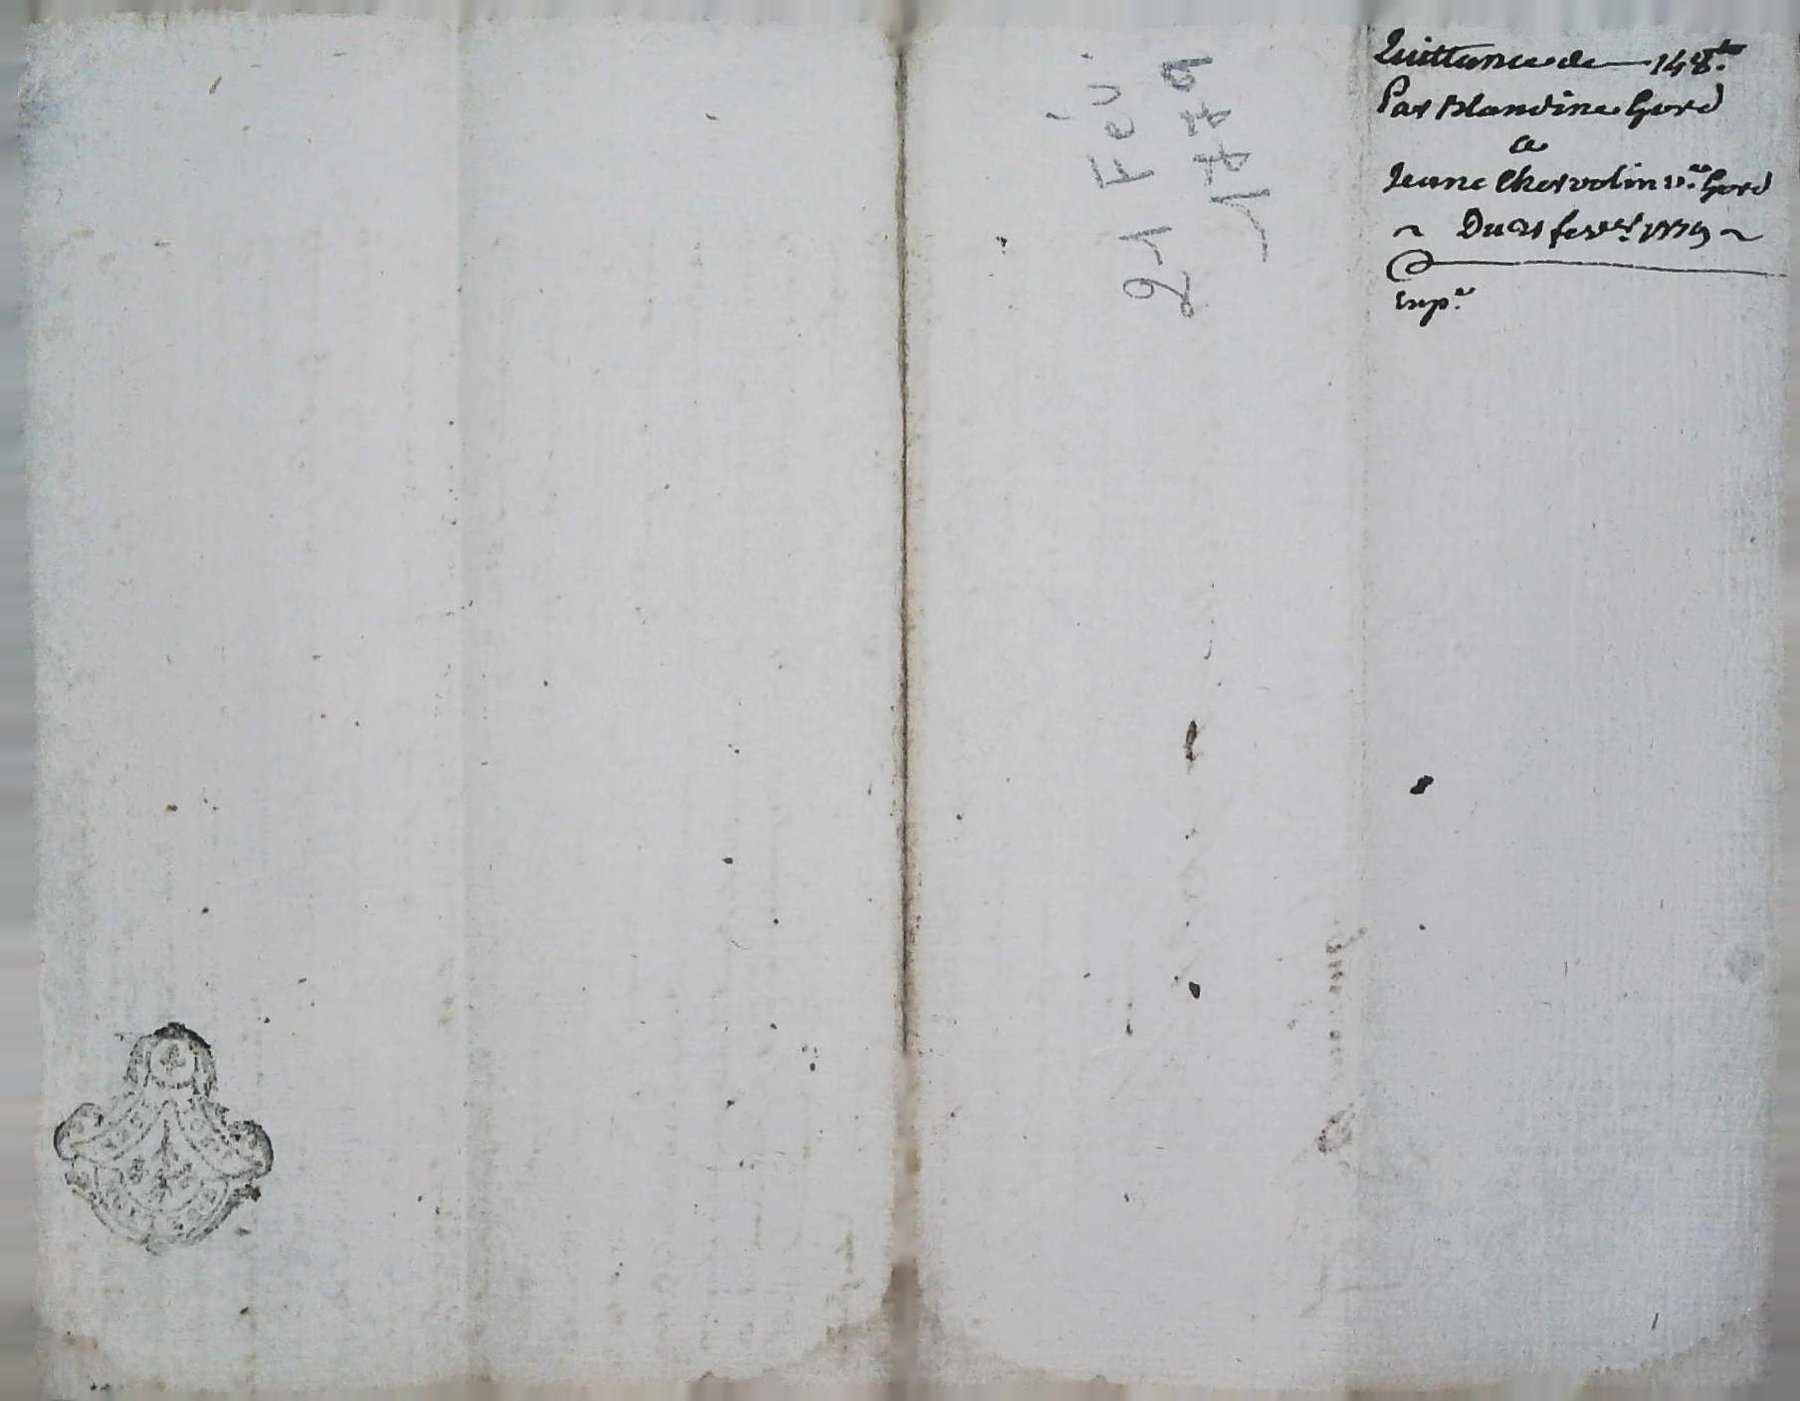 21 Fev.
1779
Quittance de — 148.tt
Par Blandine Gord
a
Jeane Chervolin v.ve Gord
~ Du 21 fevr.r 1779 ~
Exp.e